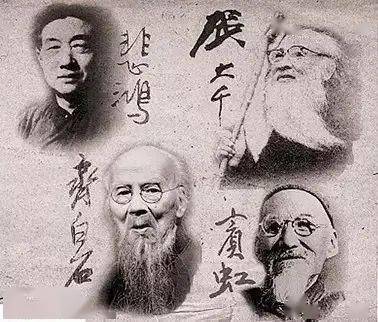 悲鸿
張大千
齊白石
賓虹